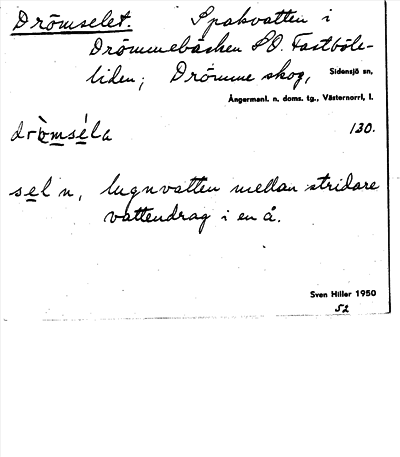 Drömselet. Spakvatten i
Drömmebäcken SO. Fastböle-
liden; Drömme skog, Sidensjö sn,
Ångermanl. n. doms. tg., Västernorrl, l.
dròmséla 130.
sel n, lugnvatten mellan stridare
vattendrag i en å.
Sven Hiller 1950
52